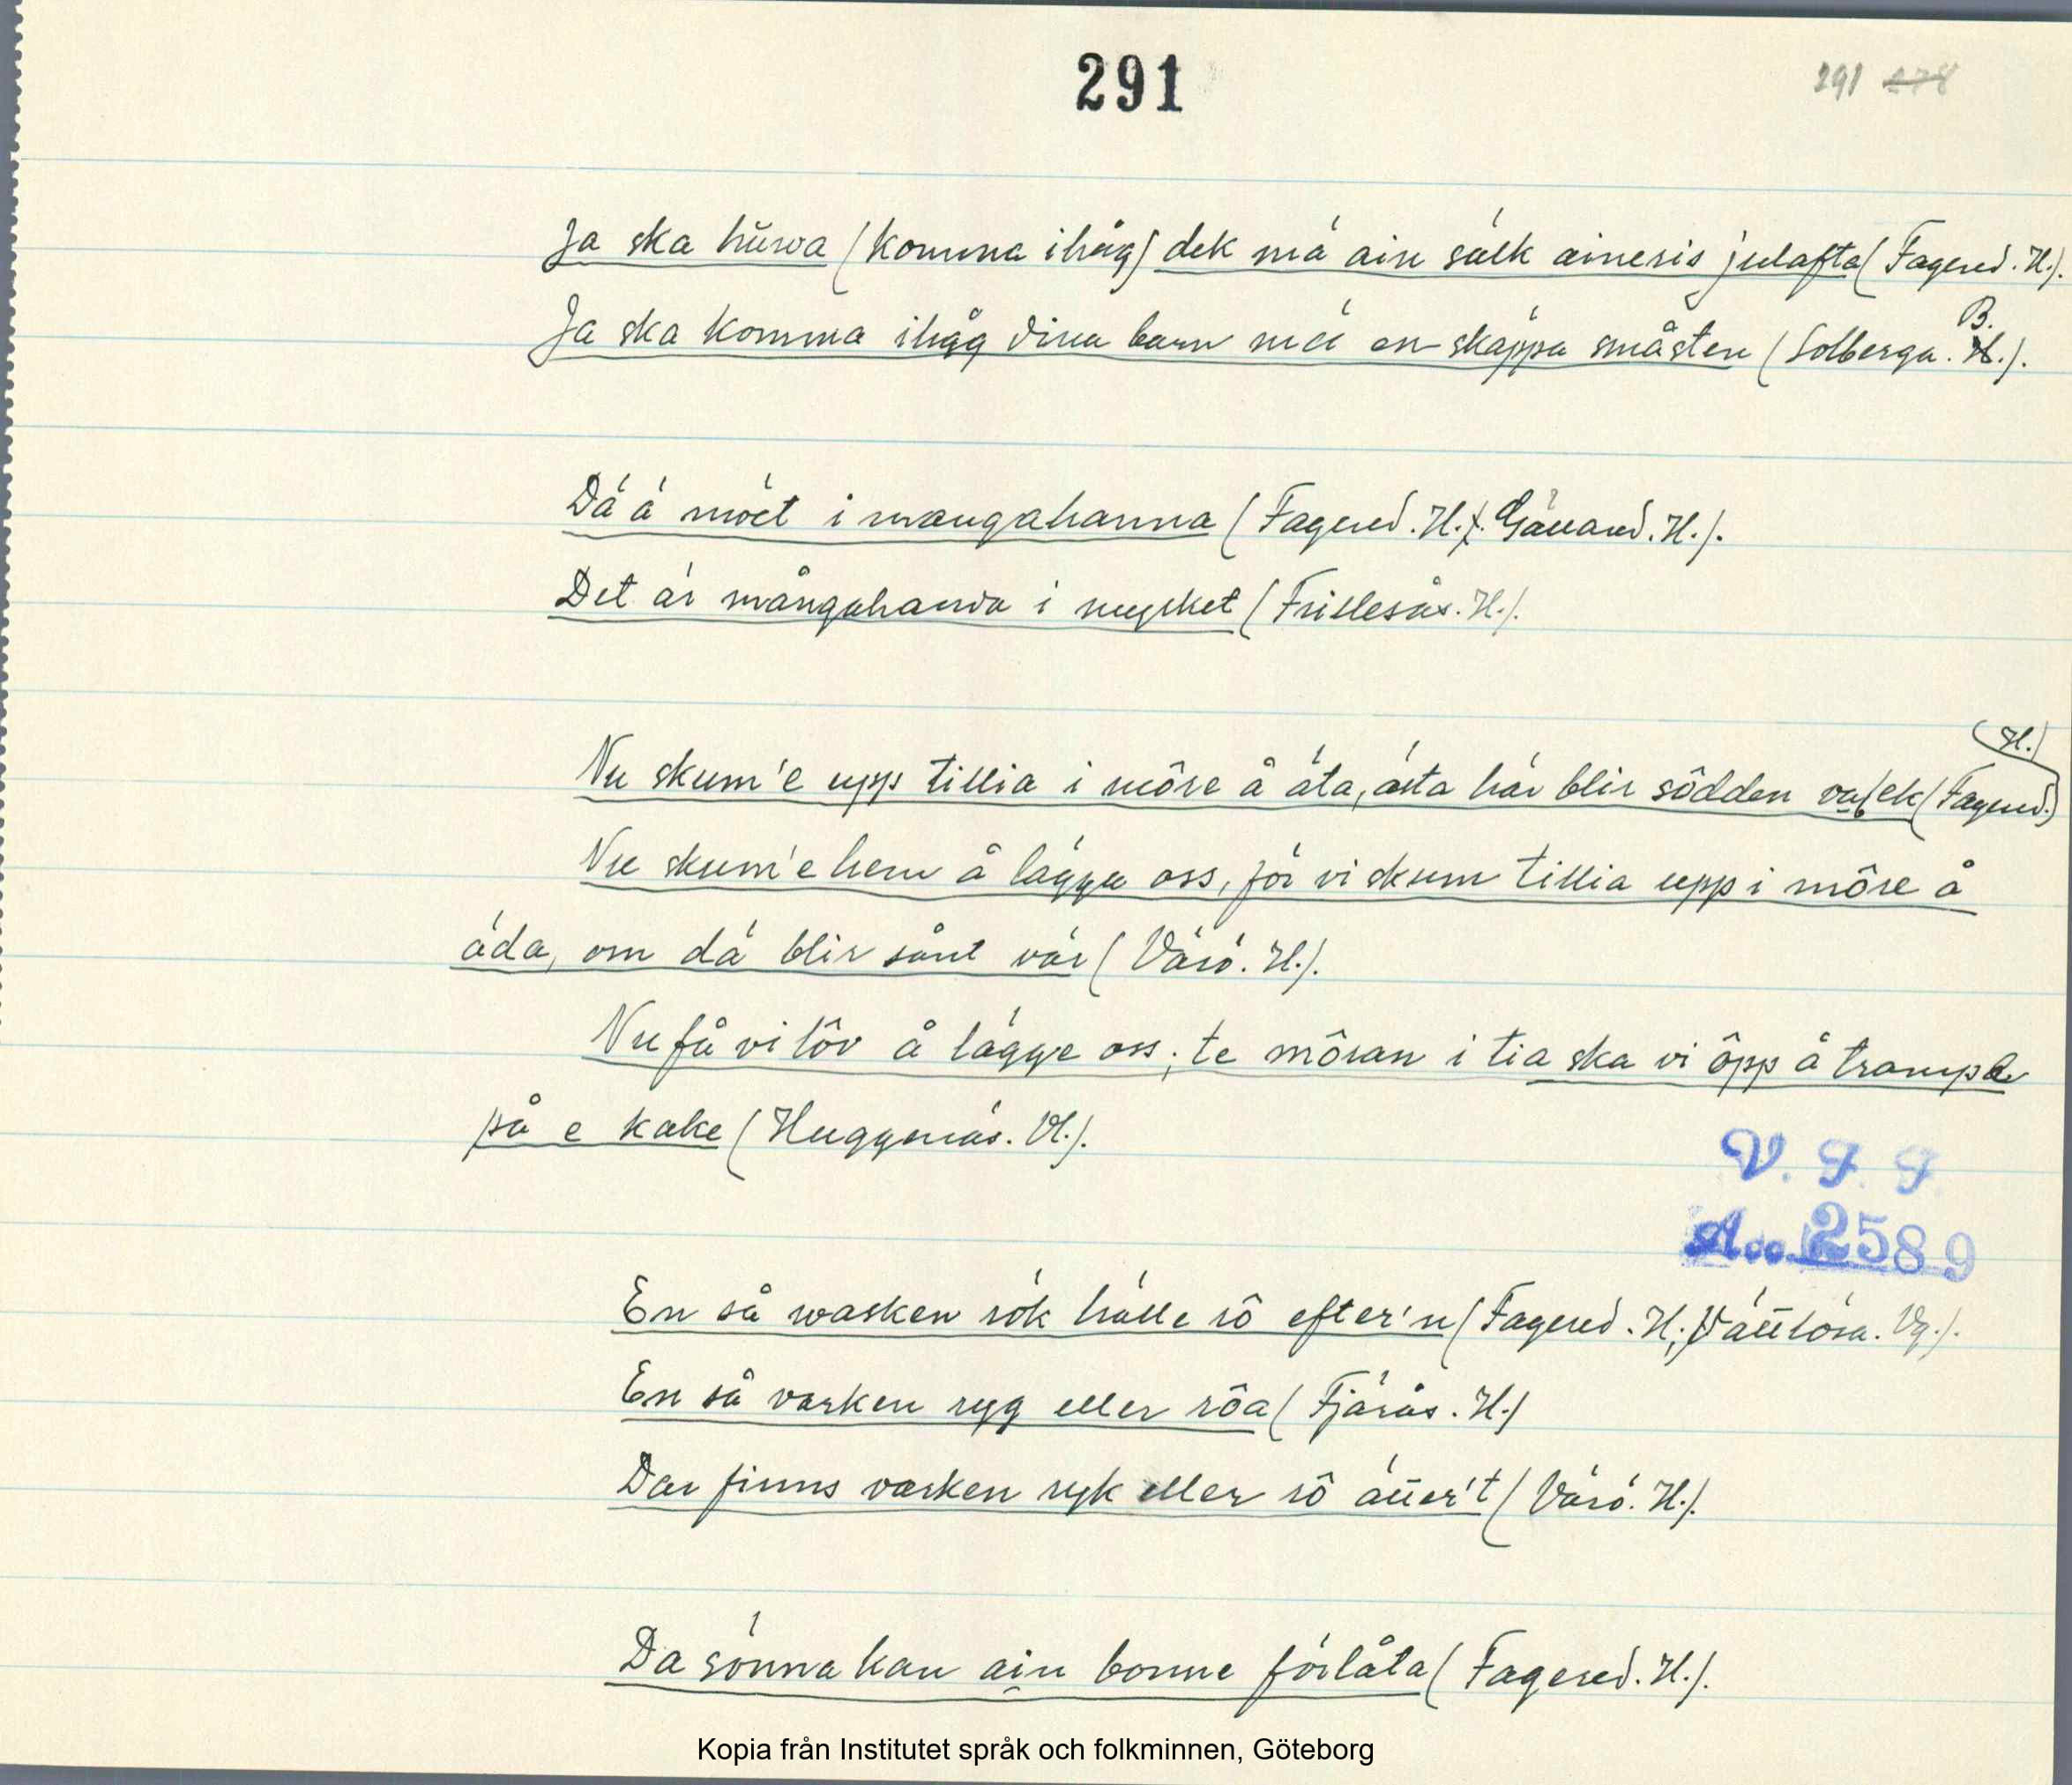 291
291 278
Ja ska hŭwa (komma ihåg) dek mä ain sälk aineris julafta (Fagered. H.).
Ja ska komma ihåg dina barn mä en skäppa småsten (Solberga. B.).
Dä ä möet i mangahanna (Fagered. H. Gällared. H.).
Det är mångahanda i mycket (Frillesås. H.).
Nu skum'e upp tillia i môre å äta, åsta här blir sôdden (Fagered. H.)
Nu skum'e hem å lägga oss, för vi skum tillia upp i môre å
äda, om dä blir sånt vär (Värö. H.).
Nu få vi lôv å lägge oss; te môran i tia ska vi ôpp å trampa
på e kake (Huggenäs. Vl.).
V. F. F.
Acc. 2589
En så wasken rök hälle rô efter'n (Fagered. H.; Vättlösa. Vg.).
En så varken ryg eller rôa (Fjärås. H.)
Dar finns varken ryk eller rô äuer't (Värö. H.).
Da sönna kan ain bonne förlåta (Fagered. H.).
Kopia från Institutet språk och folkminnen, Göteborg